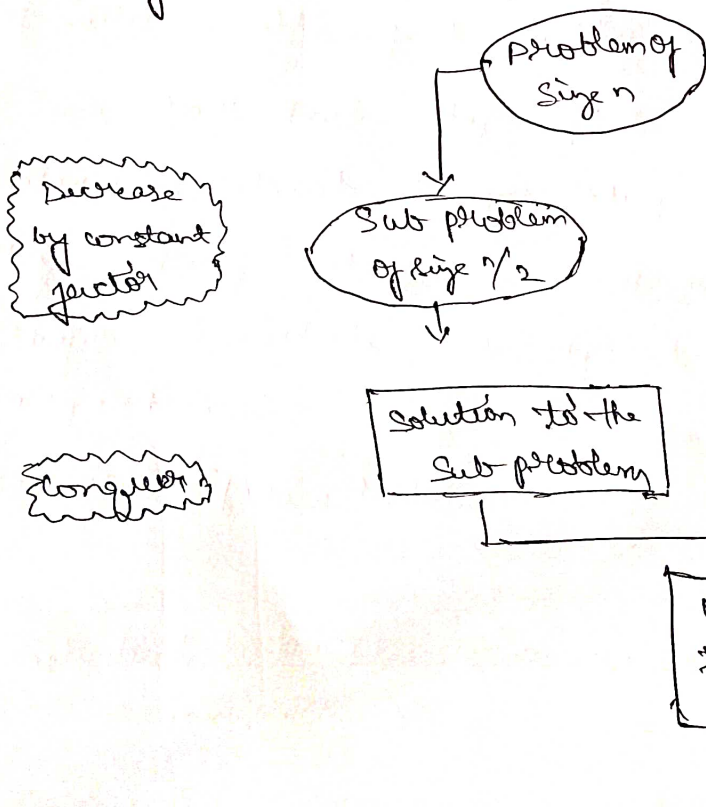 Problem of
Size n
Decrease
by constant
factor
Sub problem
of size n/2
Solution to the
Sub-problem
Conquer